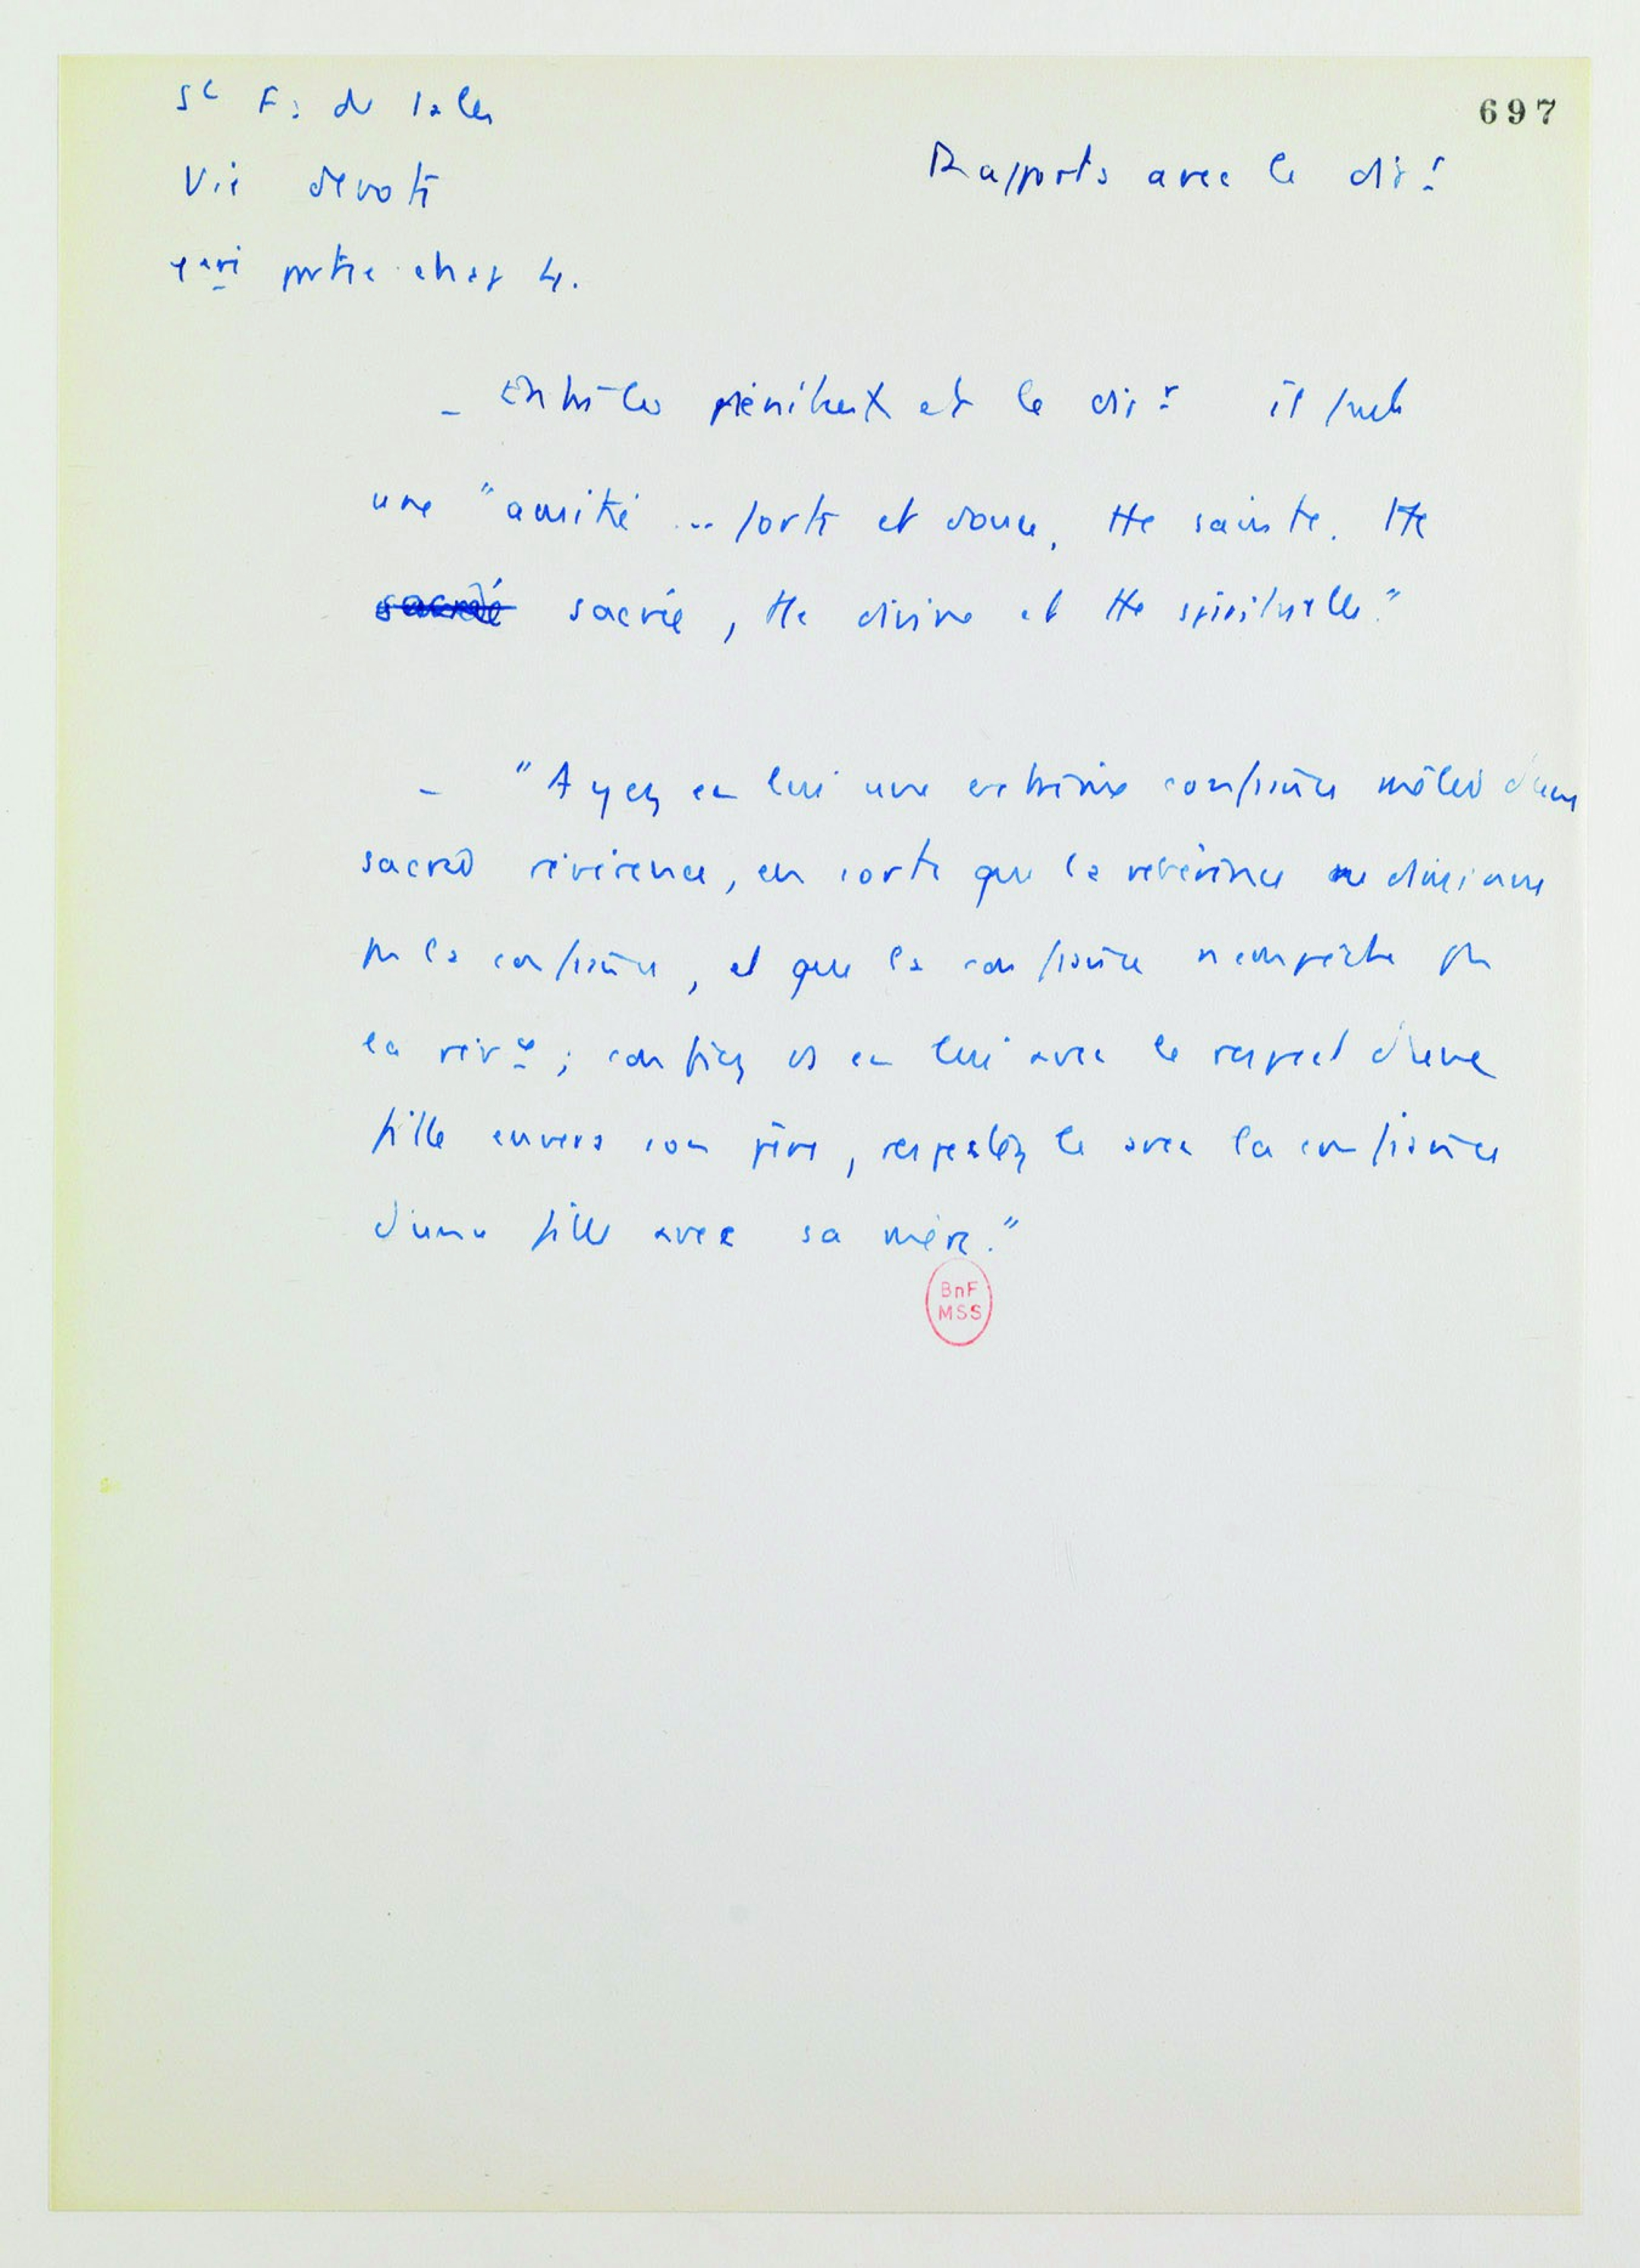 St F. de Sales
697
Vie devote
Rapports avec le dir.r
1ere partie chap 4.
- Entre les pénitents et le dir.r il faut
une "amitié ... forte et douce, tte sainte. tte
sacrée sacrée, tte divine et tte spirituelle."
- "Ayez en lui une extrême confiance mêlée d'une
sacrée révérence, en sorte que la révérence ne diminue
pas la confiance, et que la confiance n'empêche pas
la rév.ce ; confiez vs en lui avec le respect d'une
fille envers son père, respectez le avec la confiance
d'une fille avec sa mère."
BnF
MSS